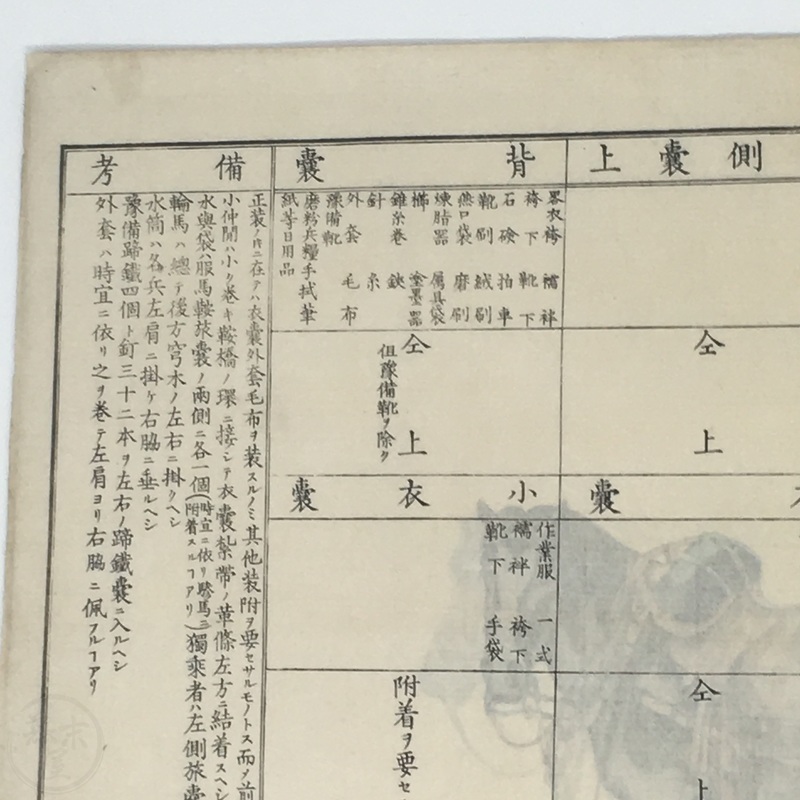 側嚢上
仝上
嚢
仝上
背嚢
畧衣袴 襦袢
袴下 靴下
石鹸 拍車
靴刷 絨刷
燕口袋 磨刷
煉脂器 属具袋
櫛 塗墨器
錐糸巻 鋏
針 糸
外套 毛布
豫備靴
磨粉兵糧手拭筆
紙等日用品
仝上
但豫備靴ヲ除ク
小衣嚢
作業服 一式
襦袢 袴下
靴下 手袋
附着ヲ要セ
備考
正装ノ時ニ在テハ衣嚢外套毛布ヲ装スルノミ其他装附ヲ要セサルモノトス而メ前
小仲間ハ小ク巻キ鞍橋ノ環ニ接シテ衣嚢紮帯ノ革條左方ニ結着スヘシ
水與袋ハ服馬鞍旅嚢ノ両側ニ各一個(時宜ニ依リ驂馬ニ附着スルヿアリ)獨乗者ハ左側旅嚢
輪馬ハ總テ後方穹木ノ左右ニ掛クヘシ
水筒ハ各兵左肩ニ掛ケ右脇ニ垂ルヘシ
豫備蹄鐵四個ト釘三十二本ヲ左右ノ蹄鐵嚢ニ入ルヘシ
外套ハ時宜ニ依リ之ヲ巻テ左肩ヨリ右脇ニ佩フルヿアリ